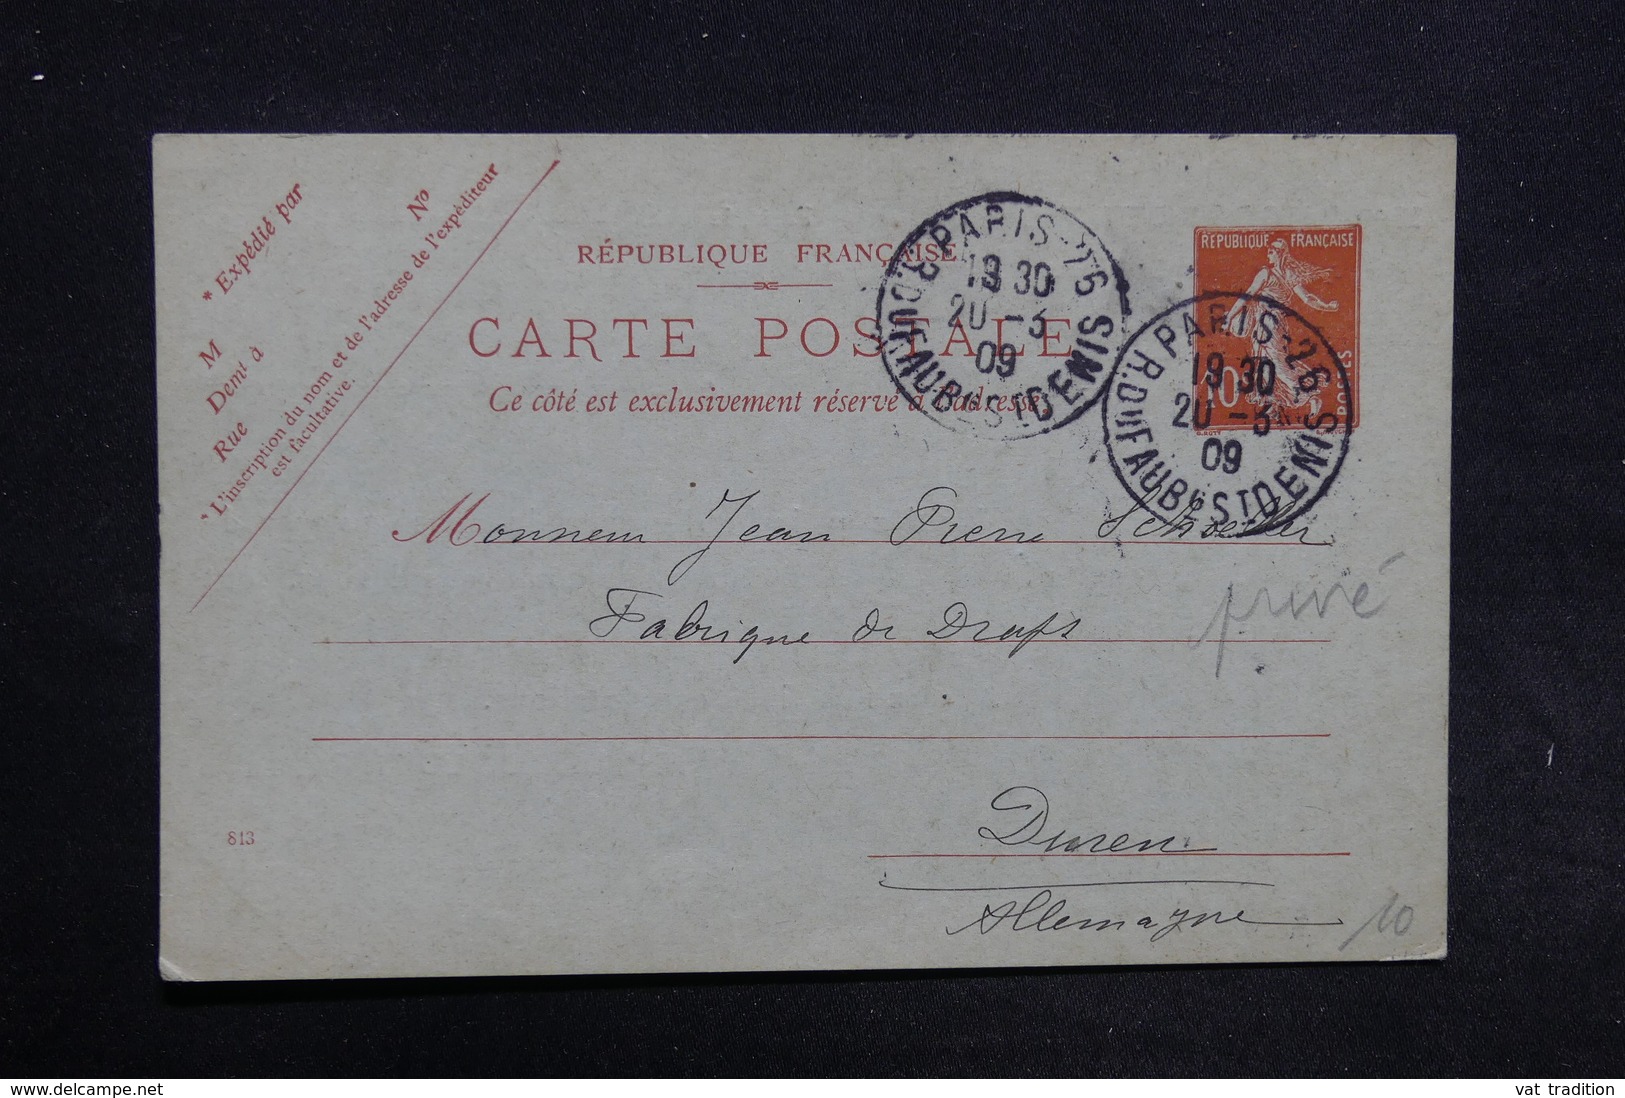 * Expédié par
M
Nº
Demt à
Rue
* L'inscription du nom et de l'adresse de l'expéditeur
est facultative.
RÉPUBLIQUE FRANÇAISE
CARTE POSTALE
Ce côté est exclusivement réservé à l'adresse.
PARIS-26
19 30
20 -3
09
R. DU FAUBG ST DENIS
RÉPUBLIQUE FRANÇAISE
10
POSTES
PARIS-26
19 30
20 -3
09
R. DU FAUBG ST DENIS
Monsieur Jean Pierre Schoeller
Fabrique de Draps
privé
Duren
Allemagne
813
10
www.delcampe.net
vat tradition